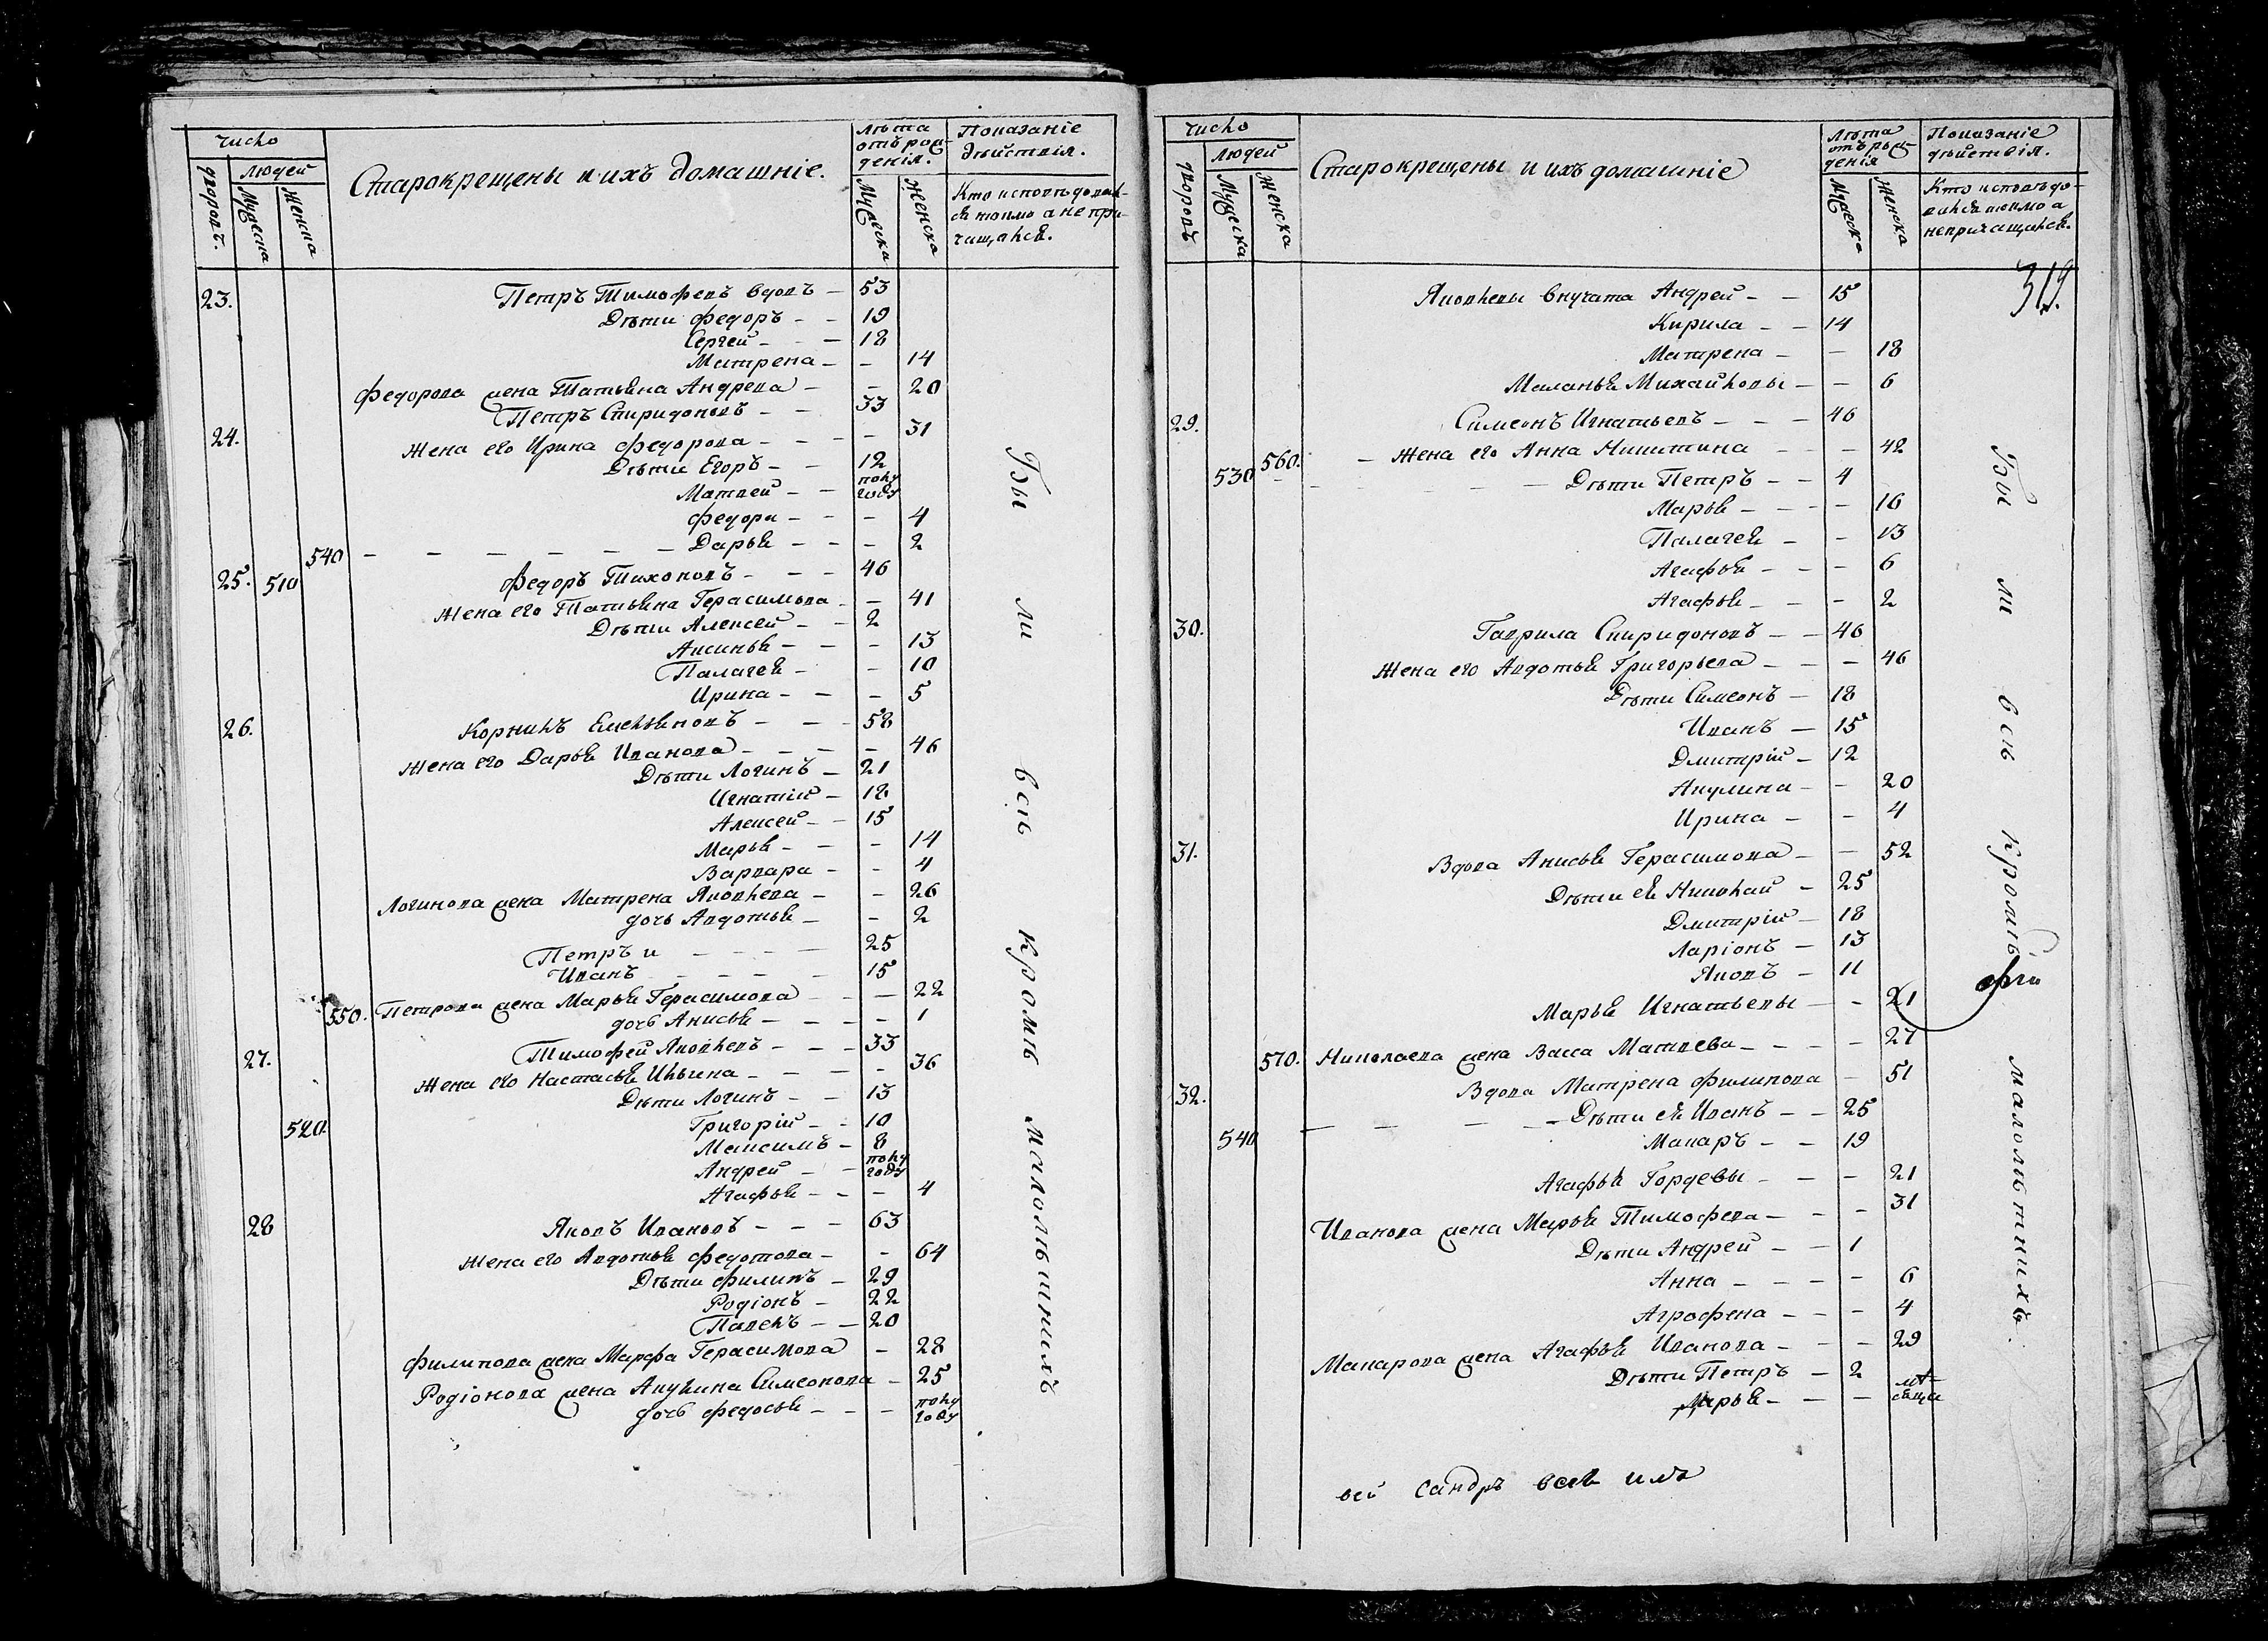 число
дворовъ.
людей
Мужеска
Женска
Старокрещены и ихъ домашніе.
лѣта отъ рож-
денія.
Мужеска
Женска
Показаніе
дѣйствія.
Кто исповѣдовал-
ся токмо а не при-
чащался.
23. Петръ Тимофеевъ вдовъ — 53
Дѣти Федоръ — — 19
Сергей — — 18
Матрена — — 14
Федорова жена Татьяна Андреева — — 20
24. Петръ Спиридоновъ — — 33
Жена его Ирина Федорова — — — 31
Дѣти Егоръ — — 12
Матвей — — полу году
Федора — — — 4
540 — — — — — — Дарья — — — 2
25. 510 Федоръ Тихоновъ — — — 46
Жена его Татьяна Герасимова — — 41
Дѣти Алексей — — 2
Аксинья — — — 13
Палагея — — 10
Ирина — — — 5
26. Корнилъ Емельяновъ — — — 58
Жена его Дарья Иванова — — — — 46
Дѣти Логинъ — 21
Игнатій — 18
Алексей — — 15
Марья — — — 14
Варвара — — 4
Логинова жена Матрена Яковлева — — 26
дочь Авдотья — — 2
Петръ и — — — — 25
Иванъ — — — — 15
550. Петрова жена Марья Герасимова — — — 22
дочь Анисья — — — — 1
27. Тимофей Яковлевъ — — — 33
Жена его Настасья Ильина — — — — 36
Дѣти Логинъ — — 13
520 Григорій — — 10
Максимъ — 8
Андрей — — полу году
Агафья — — — 4
28 Яковъ Ивановъ — — — 63
Жена его Авдотья Федотова — — 64
Дѣти Филипъ — 29
Родіонъ — 22
Павелъ — — 20
Филипова жена Марфа Герасимова — 28
Родіонова жена Акулина Симеонова — 25
дочь Федосья — — — полу году
Бы ли всѣ кромѣ малолѣтнихъ
число
дворовъ
людей
Мужеска
Женска
Старокрещены и ихъ домашніе
Лѣта
отъ рож-
денія
Мужеска
Женска
Показаніе
дѣйствія.
Кто исповѣдо-
вался токмо а
непричащался.
319.
Яковлевы внучата Андрей — — 15
Кирила — — 14
Матрена — — 18
Маланья Михайловы — — 6
29. Симеонъ Игнатьевъ — — — 46
560. — Жена его Анна Никитина — — — 42
530 — — — — — Дѣти Петръ — — 4
Марья — — — — 16
Палагея — — 13
Агафья — — — 6
Агафья — — — 2
30. Гаврила Спиридоновъ — — 46
Жена его Авдотья Григорьева — — — 46
Дѣти Симеонъ — 18
Иванъ — 15
Дмитрій — 12
Акулина — — 20
Ирина — — 4
31. Вдова Анисья Герасимова — — 52
Дѣти ея Николай — 25
Дмитрій — 18
Ларіонъ — 13
Яковъ — 11
Марья Игнатьевы — — 21
570. Николаева жена Васса Матвеева — — — — 27
32. Вдова Матрена Филипова — 51
540 — — — — Дѣти ея Иванъ — — 25
Макаръ — — 19
Агафья Гордевы — — — 21
Иванова жена Марья Тимофеева — — — 31
Дѣти Андрей — — 1
Анна — — — — 6
Аграфена — — — 4
Макарова жена Агафья Иванова — — — 29
Дѣти Петръ — 2
Марья — — — мѣ-
сяца
Бы ли всѣ кромѣ малолѣтнихъ.